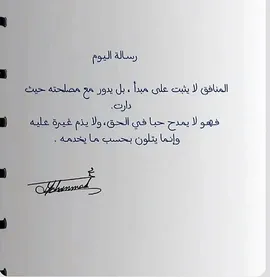 رسالة اليوم
المنافق لا يثبت على مبدأ ، بل يدور مع مصلحته حيث
دارت.
فهو لا يمدح حبا في الحق، ولا يذم غيرة عليه
وإنما يتلون بحسب ما يخدمه .
Mohammed